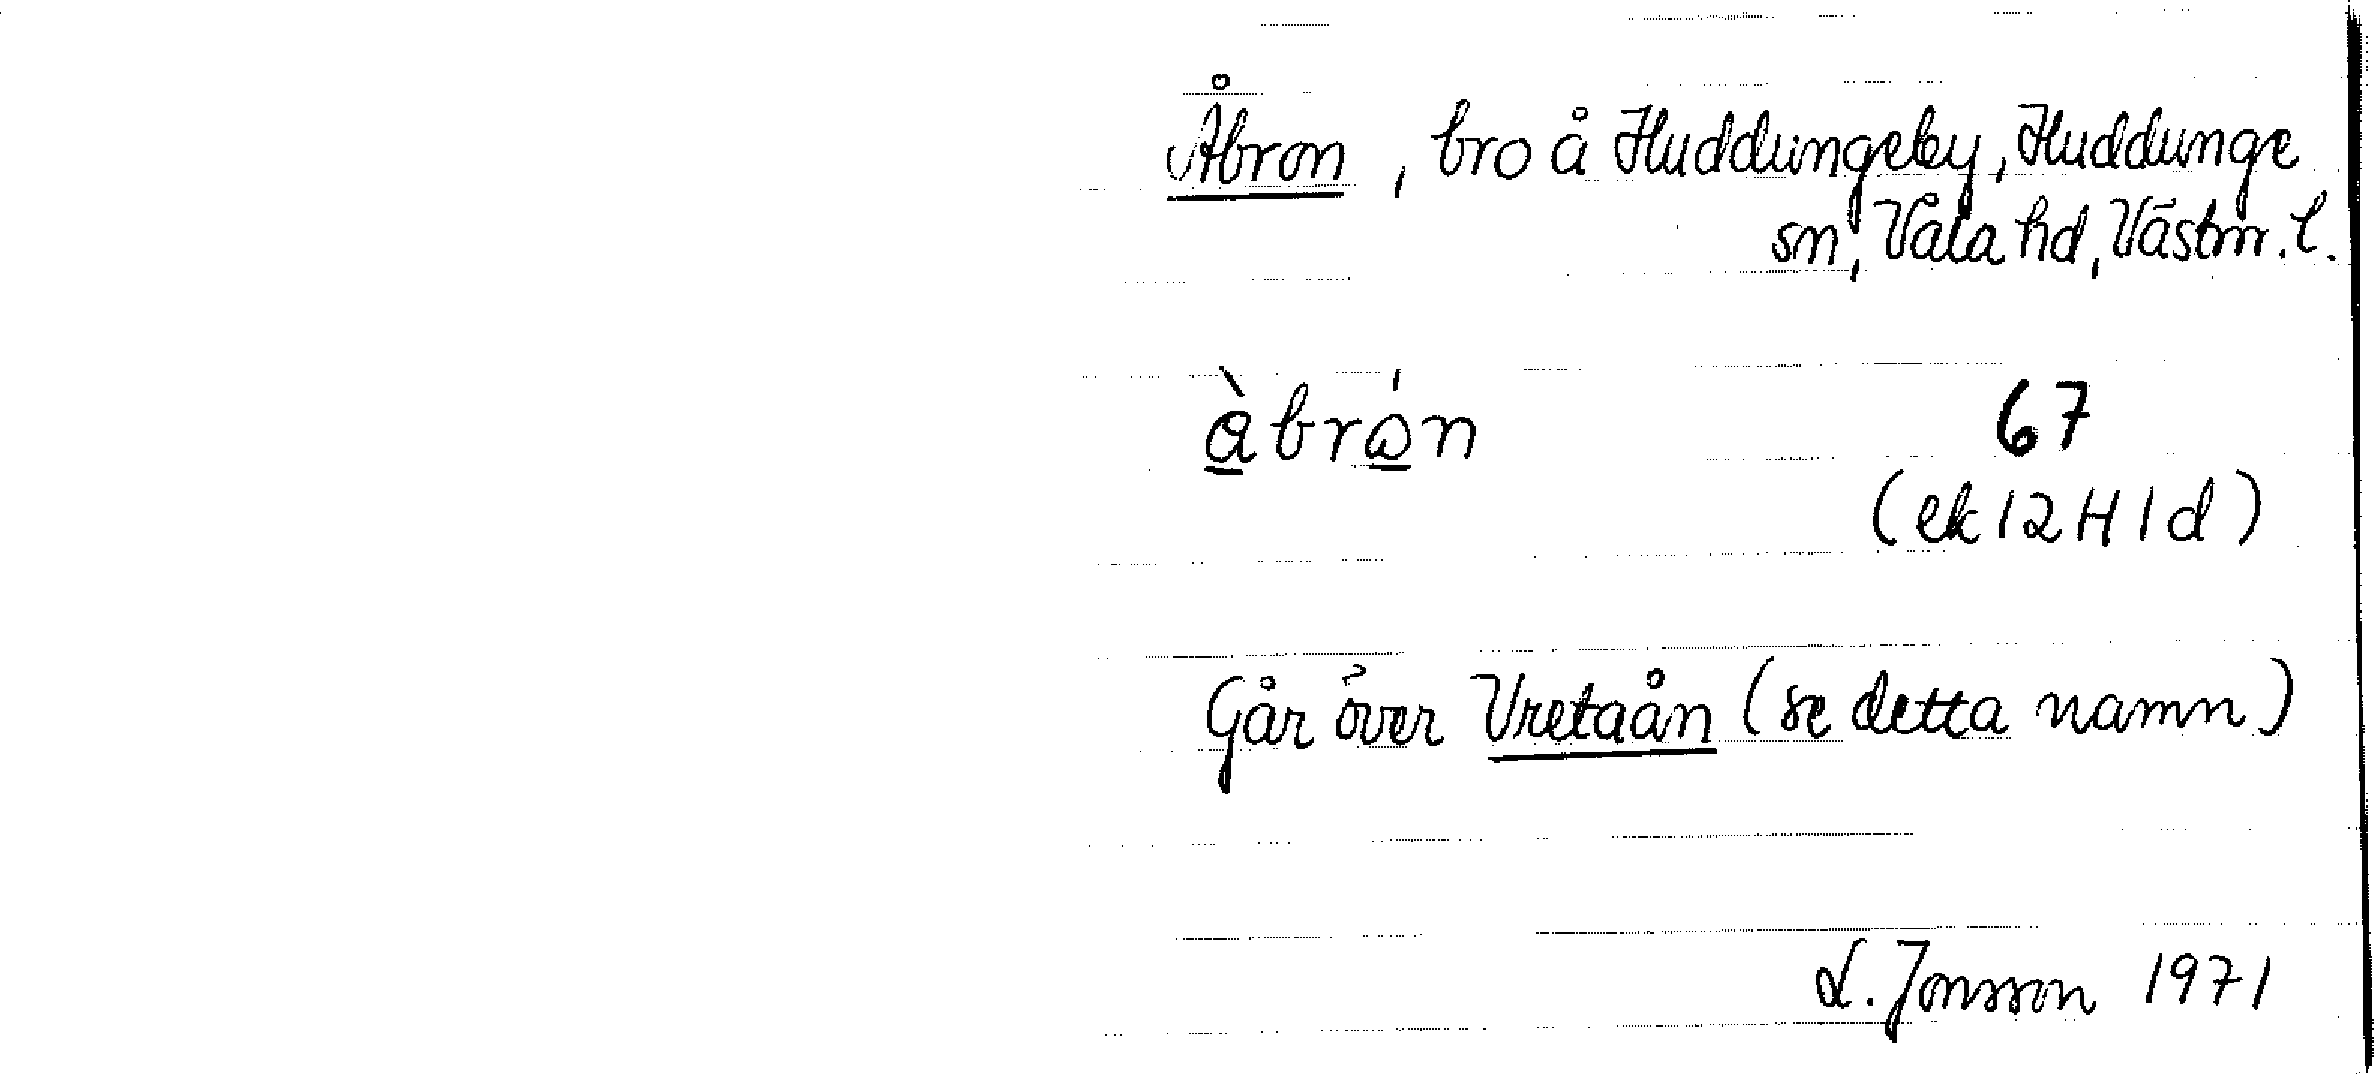 Åbron, bro å Huddungeby, Huddunge
sn, Våla hd, Västm. l.
àbrón 67
(ek 12H1d)
Går över Vretaån (se detta namn)
L. Jonsson 1971